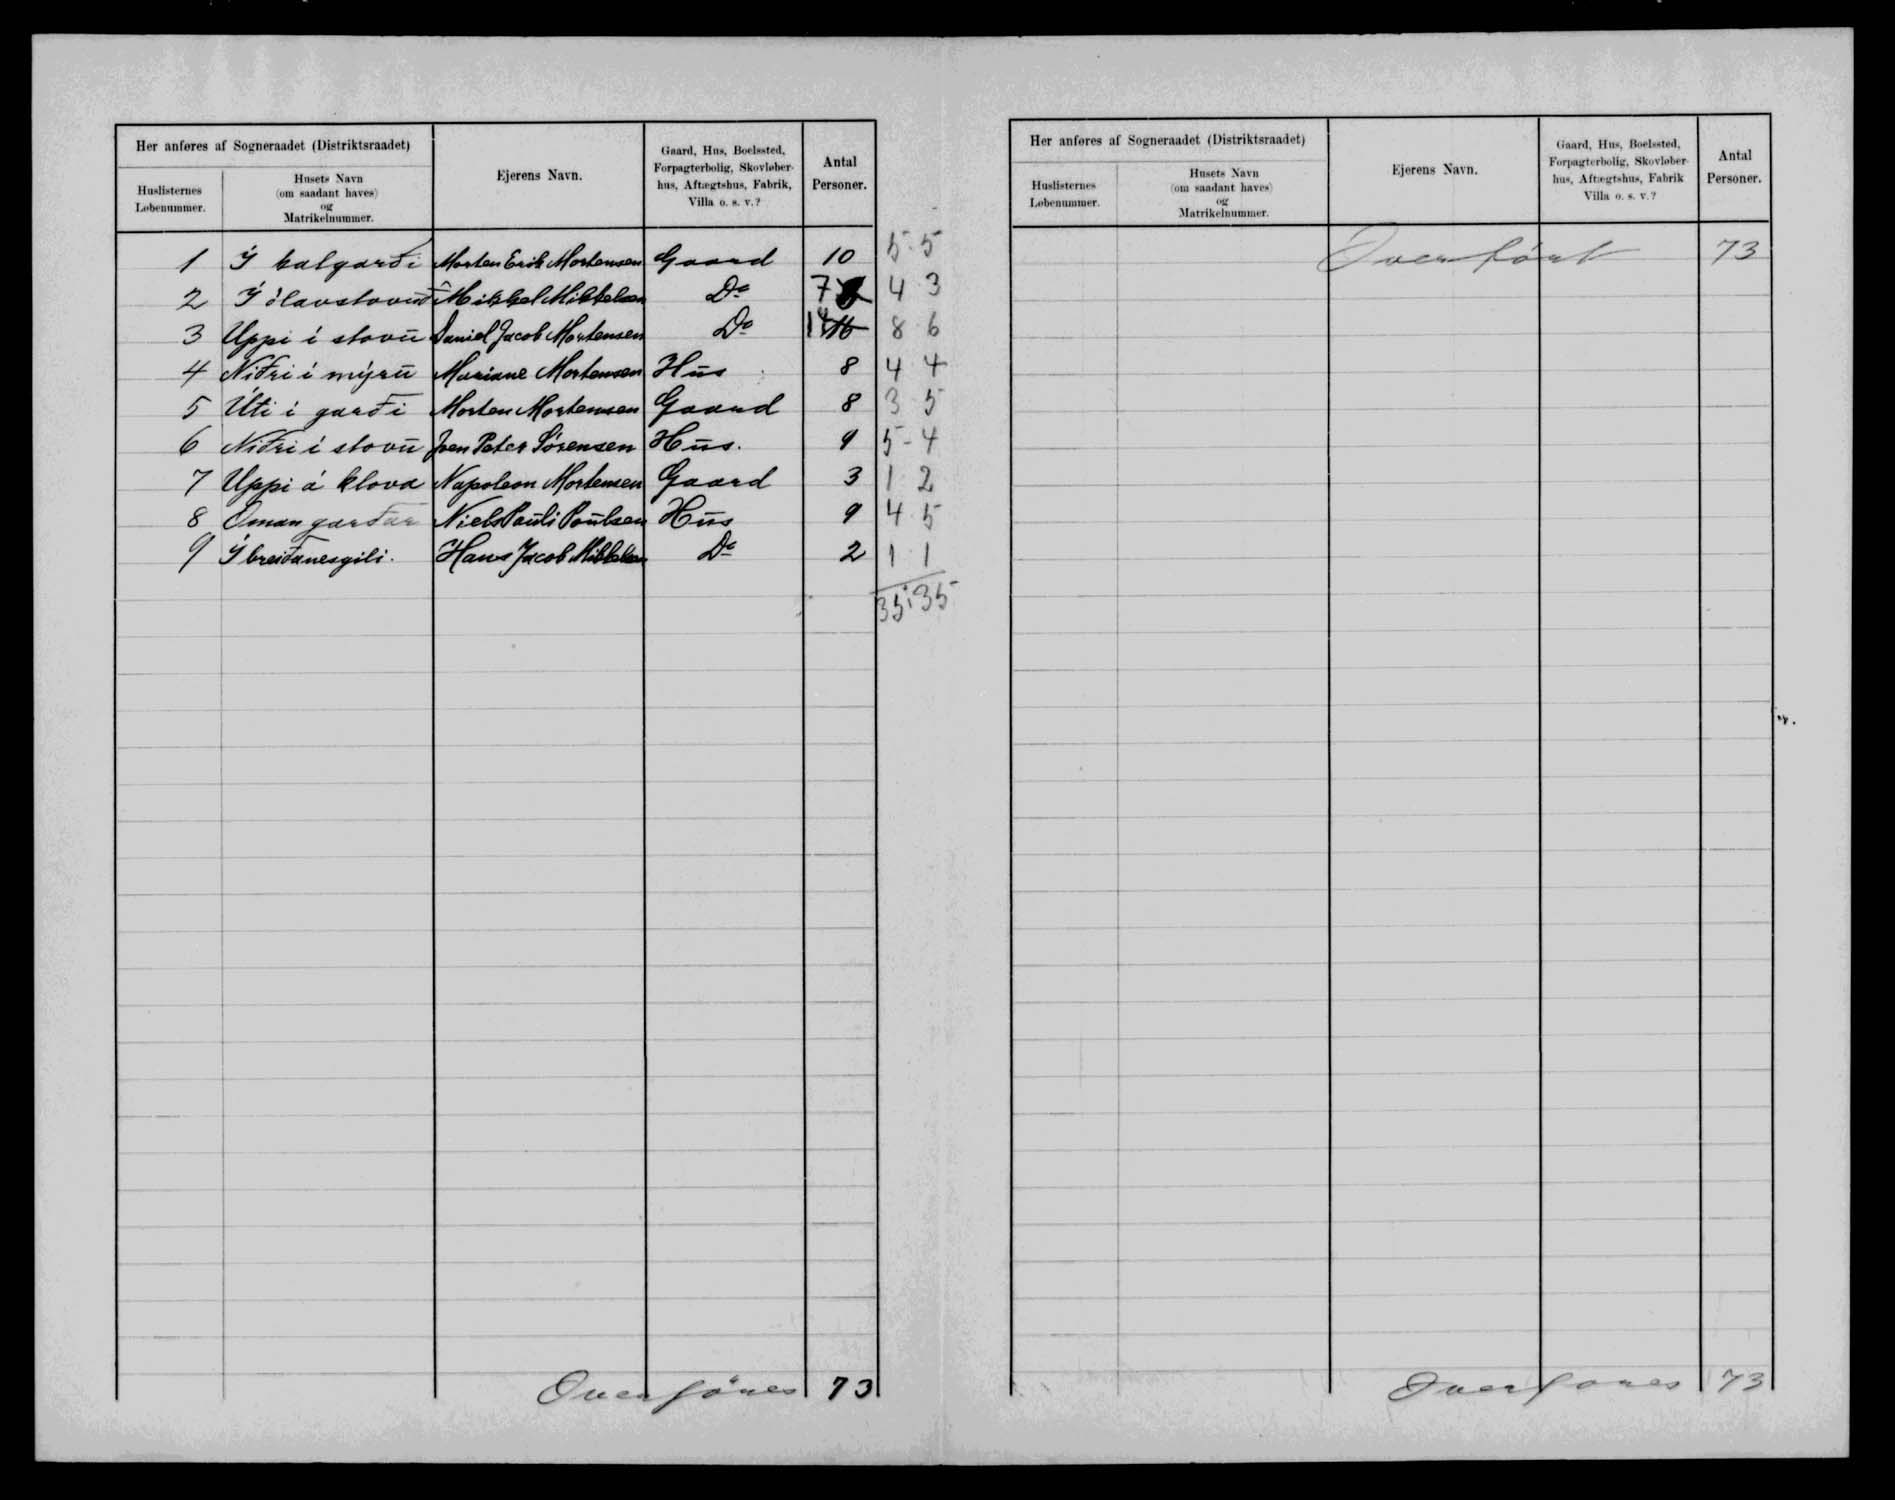 Her anføres af Sogneraadet (Distriktsraadet)
Huslisternes Løbenummer.
Husets Navn (om saadant haves) og Matrikelnummer.
Ejerens Navn.
Gaard, Hus, Boelssted, Forpagterbolig, Skovløberhus, Aftægtshus, Fabrik, Villa o. s. v.?
Antal Personer.
1 Í kalgarði Morten Erik Mortensen Gaard 10 5 5
2 Í ólavstovu Mikkel Mikkelsen Do 7 4 3
3 Uppi í stovu Daniel Jacob Mortensen Do 14 16 8 6
4 Niðri í mýru Mariane Mortensen Hus 8 4 4
5 Úti í garði Morten Mortensen Gaard 8 3 5
6 Niðri í stovu Joen Peter Sörensen Hus. 9 5-4
7 Uppi á klova Napoleon Mortensen Gaard 3 1 2
8 Oman garðar Niels Pauli Poulsen Hus 9 4 5
9 Í breiðanesgili. Hans Jacob Mikkelsen Do 2 1 1
35 35
Overföres 73
Her anføres af Sogneraadet (Distriktsraadet)
Huslisternes Løbenummer.
Husets Navn (om saadant haves) og Matrikelnummer.
Ejerens Navn.
Gaard, Hus, Boelssted, Forpagterbolig, Skovløberhus, Aftægtshus, Fabrik Villa o. s. v.?
Antal Personer.
Overfört 73
Overföres 73